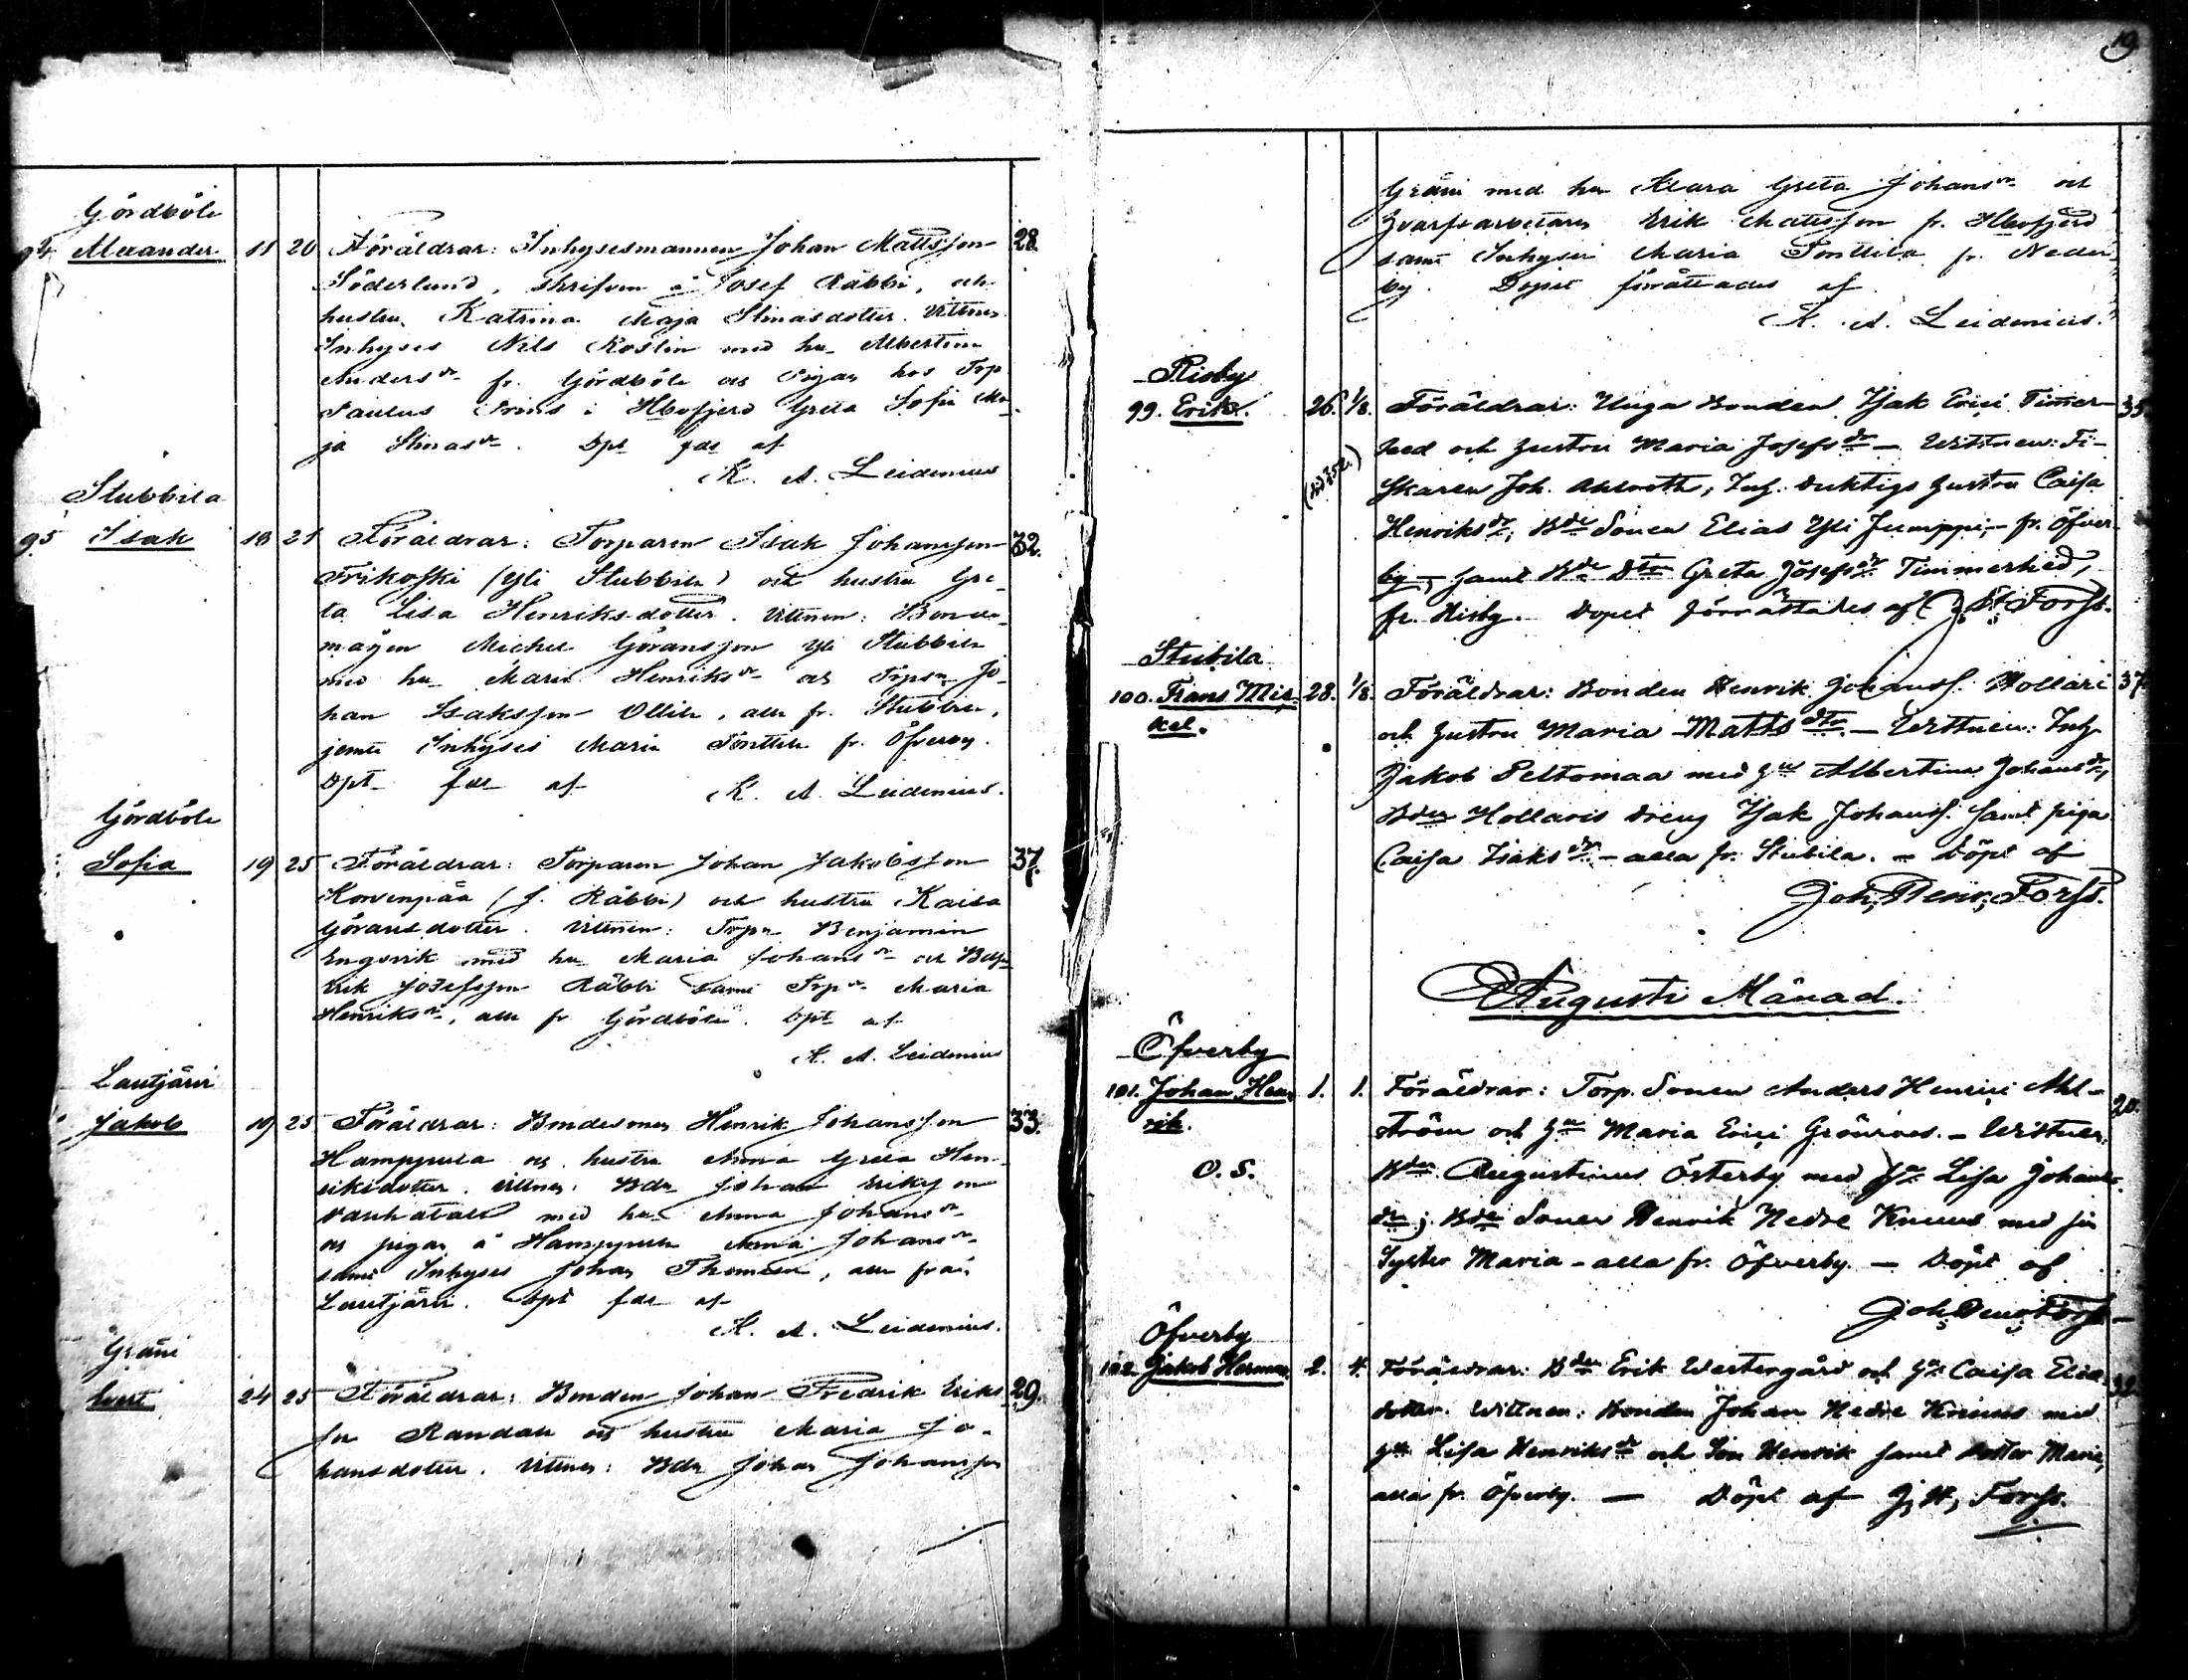 Gördböle
94. Alexander 11 20 Föräldrar: Inhysesmannen Johan Mattsson 28.
Söderlund, skrifven å Josef Räbbi, och
hustru Katrina Maja Stinasdotter. Vittnen
Inhyses Nils Roslin med hu Albertina
Anders dr fr. Gördböle och Pigan hos Torp
Paulus Prins i Håfjerd Greta Sofia Ma-
ja Stinas dr. Dpt fde af
K. A. Leidenius
Stubbila
95 Isak 18 21 Föräldrar: Torparen Isak Johansson 32.
Frikofski (Yli Stubbila) och hustru Gre-
ta Lisa Henriksdotter. Vittnen: Bonde-
mågen Michel Göransson Yli Stubbila
med hu Maria Henriks dr och Torpsn Jo-
han Isaksson Ollila, alla fr. Stubbila,
jemte Inhyses Maria Tönttila fr. Öfverby.
Dpt fde af K. A. Leidenius.
Gördböle
Sofia 19 25 Föräldrar: Torparen Johan Jakobsson 37.
Korvenpää (f. Räbbi) och hustru Kaisa
Göransdotter. Vittnen: Torpn Benjamin
Engsvik med hu Maria Johans dr och Bdsn
Erik Josefsson Räbbi samt Torp dr Maria
Henriks dr, alla fr Gördböle. Dpt af
K. A. Leidenius
Lautjärvi
Jakob 19 25 Föräldrar: Bondesonen Henrik Johansson 33.
Hamppula och hustru Anna Greta Hen-
riksdotter. Vittnen: Bdn Johan Eriksson
Vanhatalo med hu Anna Johans dr
och pigan å Hamppula Anna Johans dr
samt Inhyses Johan Thomasson, alla från
Lautjärvi. Dpt fde af
K. A. Leidenius.
Gräni
Evert 24 25 Föräldrar: Bonden Johan Fredrik Eriks- 29.
son Randala och hustru Maria Jo-
hansdotter. Vittnen: Bdn Johan Johansson
19
Gräni med hu Klara Greta Johans dr och
Hvarfsarbetaren Erik Mattsson fr. Håfjerd
samt Inhyses Maria Tönttila fr. Neder-
by. Dopet förrättades af
K. A. Leidenius.
Risby
99. Erik. 26. 1/8. Föräldrar: Unga Bonden Isak Erici Timmer- 35.
hed och hustru Maria Josefs dr — Wittnen: Fi-
skaren Joh. Ahlroth, Inh. Duktigs hustru Caisa
Henriks dr, Bde Sonen Elias Yli Jumppi, — fr. Öfver-
by —, samt Bde Dtr Greta Josefs dr Timmerhed,
fr. Risby. Dopet förrättades af J. H. Forss.
Stubila
100. Frans Mic- 28. 1/8. Föräldrar: Bonden Henrik Johanss. Hollari 37.
kel.
och hustru Maria Matts dtr. — Wittnen: Inh.
Jakob Peltomaa med hu Albertina Johans dr,
Bden Hollaris dreng Isak Johanss. samt piga
Caisa Isaks dr — alla fr. Stubila. — Döpt af
Joh. Henr. Forss.
Augusti Månad.
Öfverby
101. Johan Hen- 1. 1. Föräldrar: Torp. Sonen Anders Henrici Ahl- 20.
rik.
ström och hu Maria Erici Grönroos. — Wittnen:
O. S.
Bden Augustinus Österby med hu Lisa Johans-
dr; Bde Sonen Henrik Nedre Knuus med sin
Syster Maria — alla fr. Öfverby. — Döpt af
Joh. Henr. Forss —
Öfverby
102. Jakob Herman. 2. 4. Föräldrar: Bden Erik Westergård och hu Caisa Elia-
dotter. Wittnen: Bonden Johan Nedre Knuus med
hu Lisa Henriks dr och Son Henrik samt dotter Maria,
alla fr. Öfverby. — Döpt af J. H. Forss.